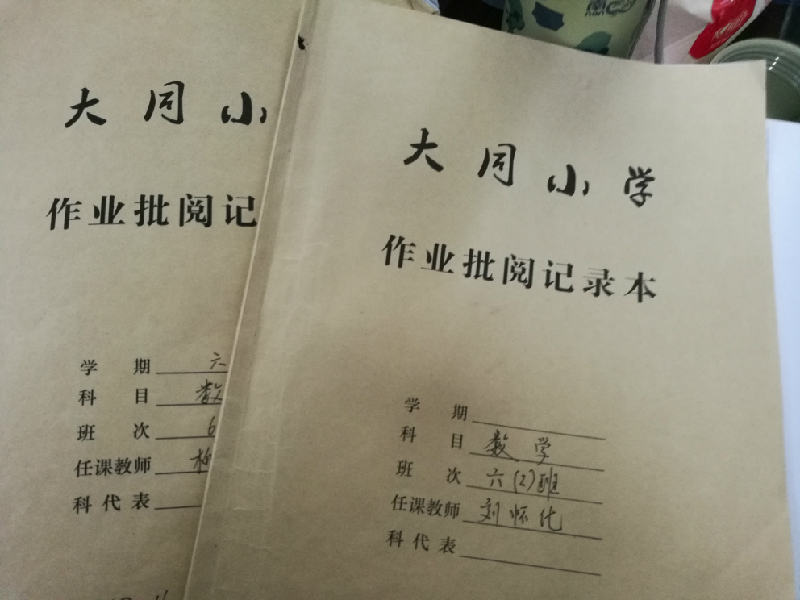 大同小
作业批阅记
学 期 六
科 目 数
班 次 6
任课教师
科代表
大同小学
作业批阅记录本
学 期
科 目 数学
班 次 六(2)班
任课教师 刘怀化
科代表